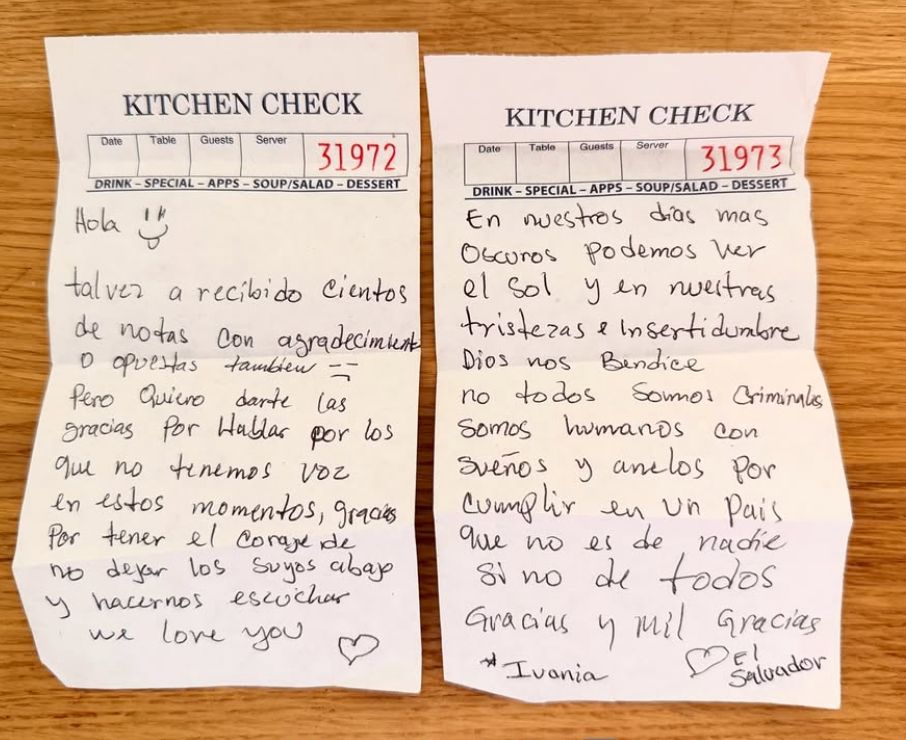 KITCHEN CHECK
Date Table Guests Server 31972
DRINK – SPECIAL – APPS – SOUP/SALAD – DESSERT
Hola
talvez a recibido cientos
de notas con agradecimiento
o opuestas tambien
Pero Quiero darte las
gracias Por Hablar por los
que no tenemos voz
en estos momentos, gracias
Por tener el coraje de
no dejar los suyos abajo
y hacernos escuchar
we love you
KITCHEN CHECK
Date Table Guests Server 31973
DRINK – SPECIAL – APPS – SOUP/SALAD – DESSERT
En nuestros días mas
Oscuros Podemos Ver
el Sol y en nuestras
tristezas e Insertidumbre
Dios nos Bendice
no todos Somos Criminales
Somos humanos con
sueños y anelos por
Cumplir en un Pais
que no es de nadie
si no de todos
Gracias y mil Gracias
*Ivania
El
Salvador